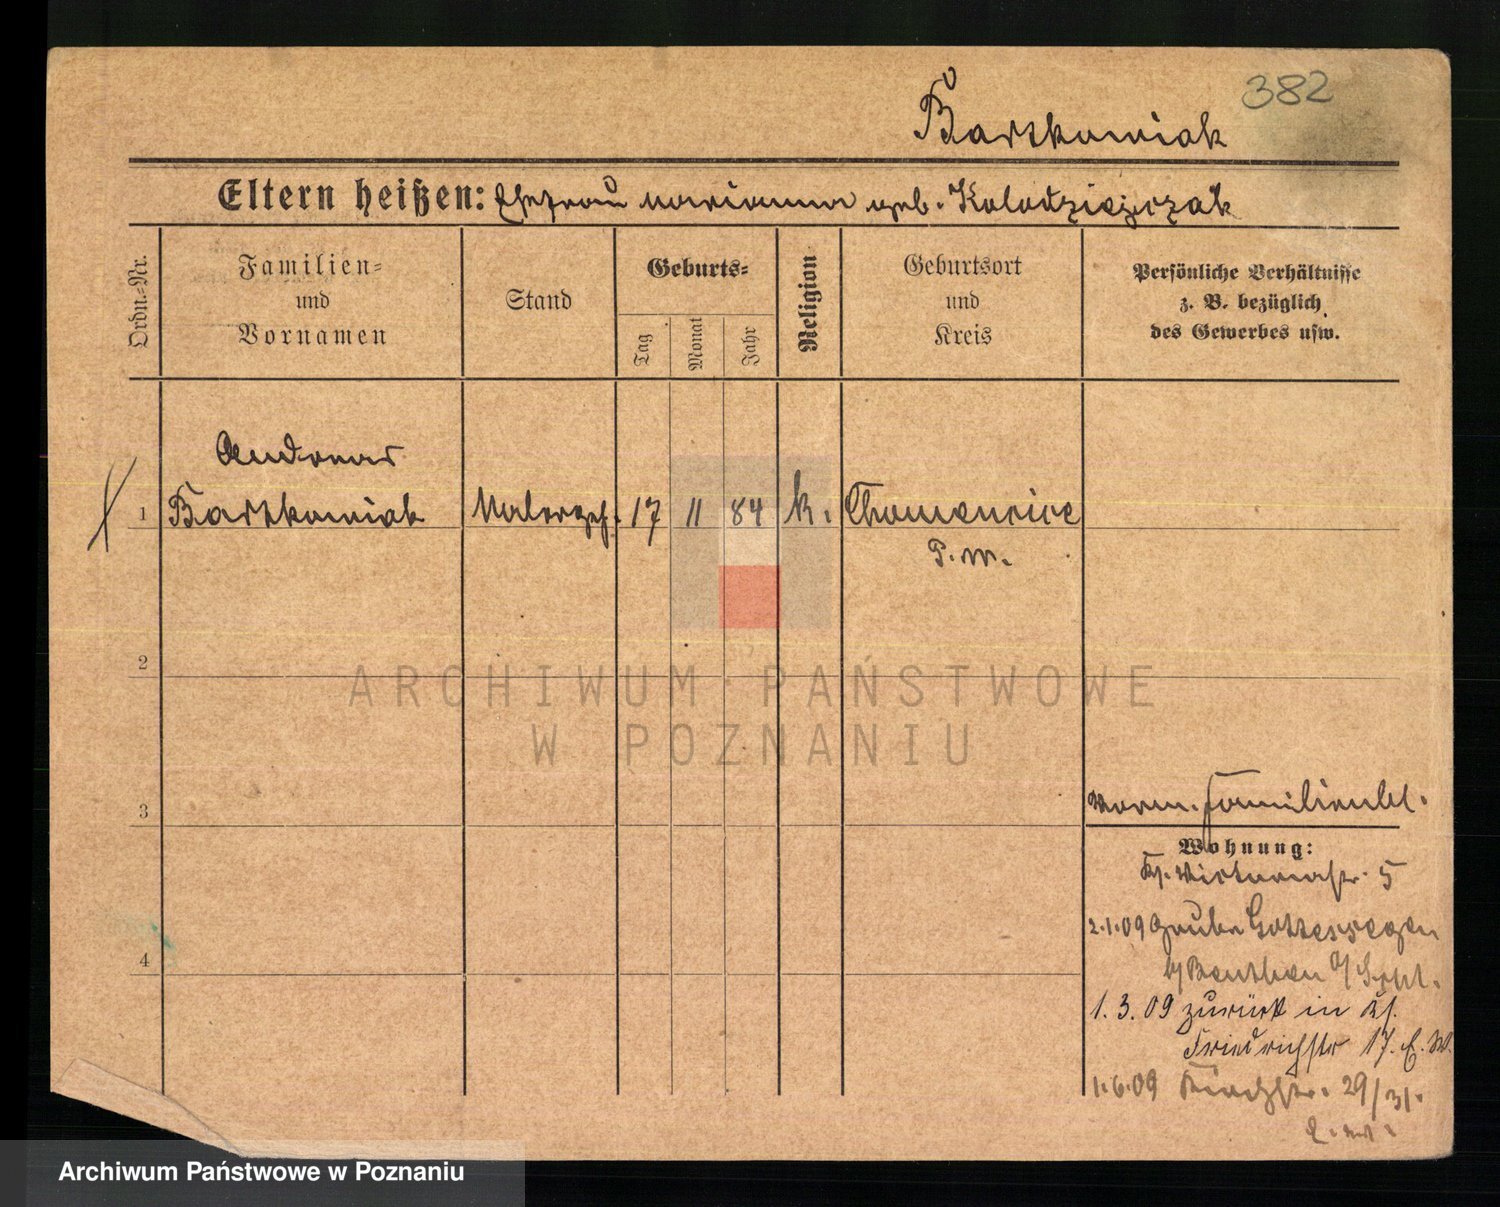 382
Bartkowiak
Eltern heißen: Ehefrau Marianna geb. Kolodziejczak
Ordn.-Nr.
Familien-
und
Vornamen
Stand
Geburts-
Tag
Monat
Jahr
Religion
Geburtsort
und
Kreis
Persönliche Verhältnisse
z. B. bezüglich
des Gewerbes usw.
Andreas
1 Bartkowiak Malergeh. 17 11 84 k. Chomencice
P. W.
2
ARCHIWUM PAŃSTWOWE
W POZNANIU
3
Familienbl.
Wohnung:
Victoriastr. 5
4
2.1.09 Grube Gottessegen
b/ Beuthen O/Schl.
1.3.09 zurück in
Friedrichstr 17. E. W.
1.6.09 29/31.
Archiwum Państwowe w Poznaniu